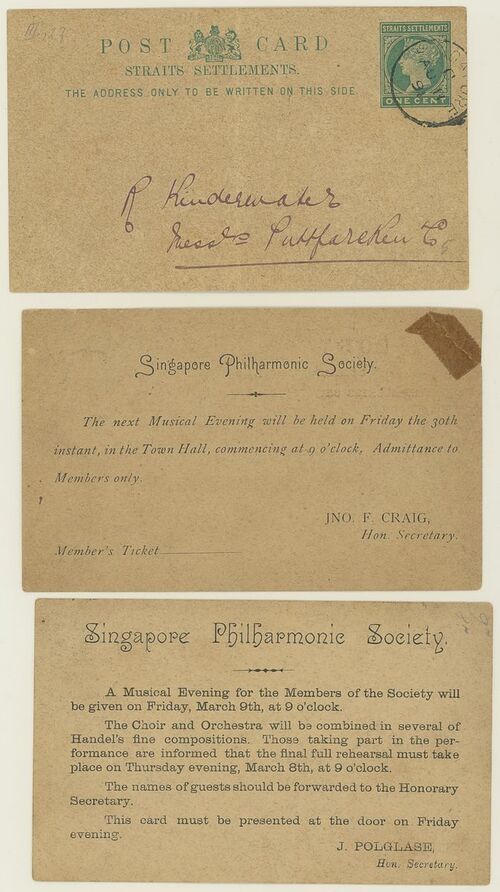 POST CARD
STRAITS SETTLEMENTS.
THE ADDRESS ONLY TO BE WRITTEN ON THIS SIDE.
STRAITS SETTLEMENTS
ONE CENT
R Kinderwater
Messrs Puttfarcken Co
Singapore Philharmonic Society.
The next Musical Evening will be held on Friday the 30th
instant, in the Town Hall, commencing at 9 o'clock, Admittance to
Members only.
JNO. F. CRAIG,
Hon. Secretary.
Member's Ticket
Singapore Philharmonic Society.
A Musical Evening for the Members of the Society will
be given on Friday, March 9th, at 9 o'clock.
The Choir and Orchestra will be combined in several of
Handel's fine compositions. Those taking part in the per-
formance are informed that the final full rehearsal must take
place on Thursday evening, March 8th, at 9 o'clock.
The names of guests should be forwarded to the Honorary
Secretary.
This card must be presented at the door on Friday
evening.
J. POLGLASE,
Hon. Secretary.